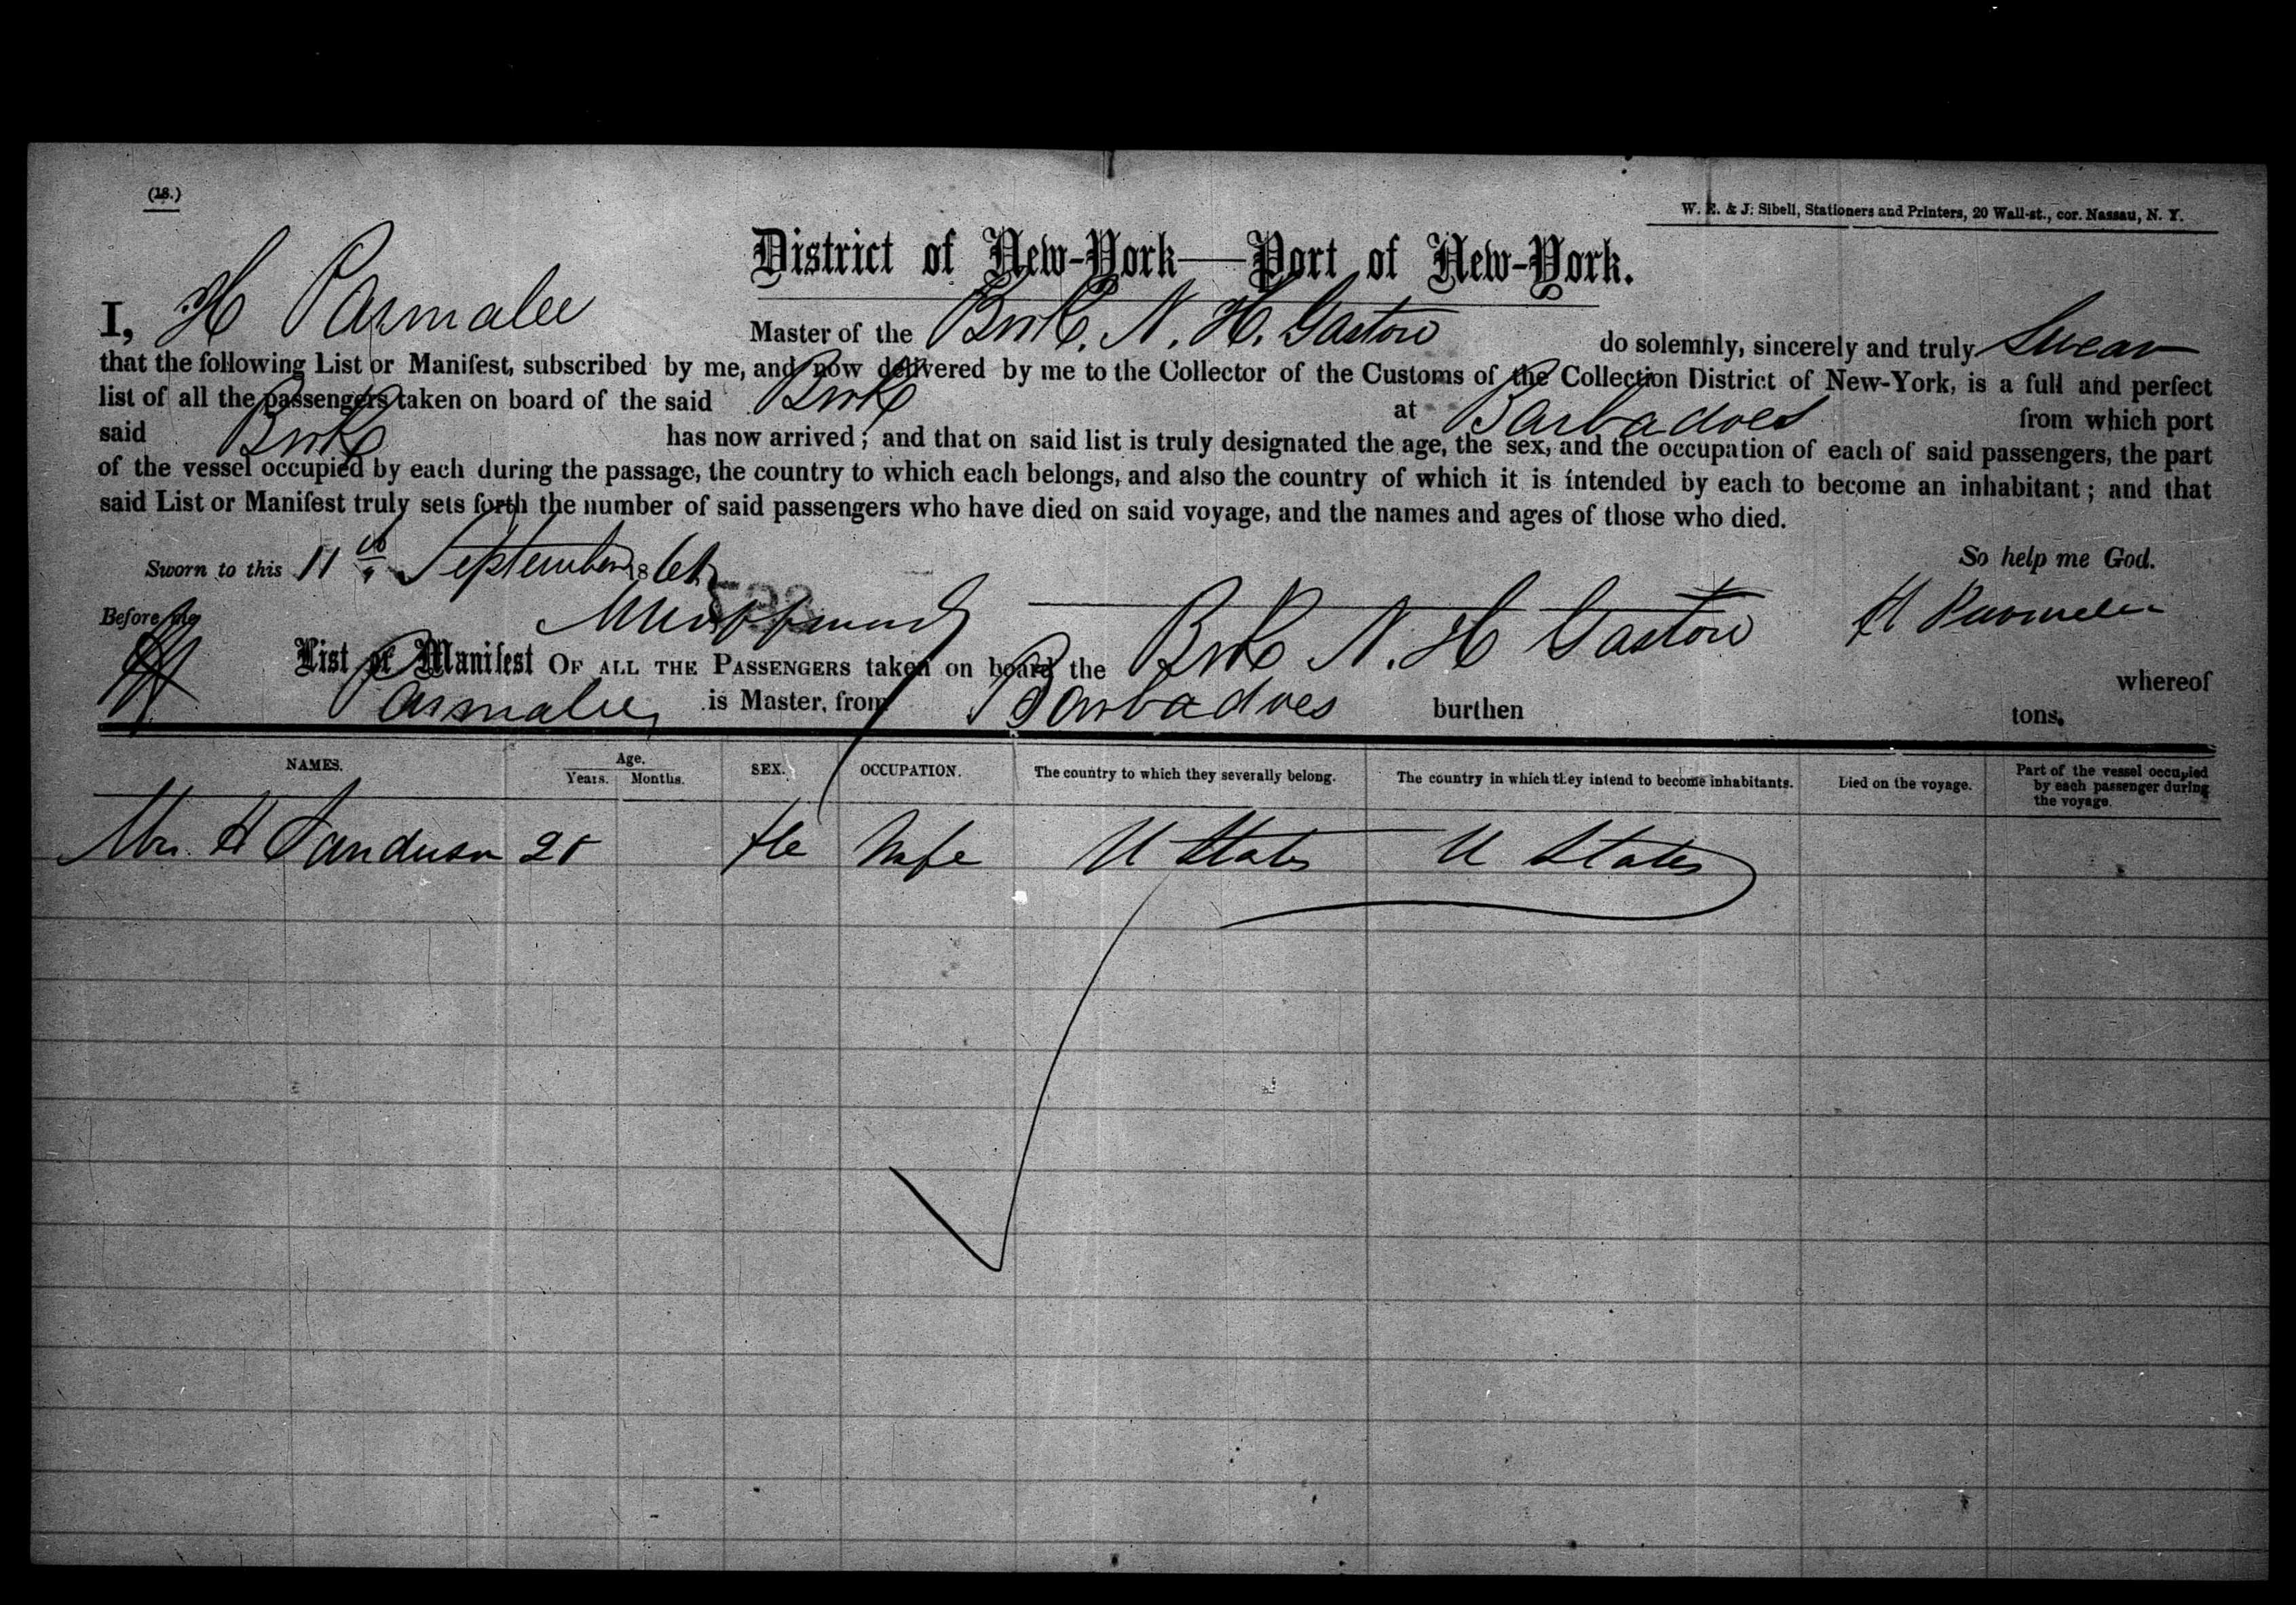 (18.)
W. E. & J. Sibell, Stationers and Printers, 20 Wall-st., cor. Nassau, N. Y.
District of New-York—Port of New-York.
I, H Parmalee Master of the Brk. N. H. Gaston do solemnly, sincerely and truly Swear
that the following List or Manifest, subscribed by me, and now delivered by me to the Collector of the Customs of the Collection District of New-York, is a full and perfect
list of all the passengers taken on board of the said Brk at Barbadoes from which port
said Brk has now arrived; and that on said list is truly designated the age, the sex, and the occupation of each of said passengers, the part
of the vessel occupied by each during the passage, the country to which each belongs, and also the country of which it is intended by each to become an inhabitant; and that
said List or Manifest truly sets forth the number of said passengers who have died on said voyage, and the names and ages of those who died.
Sworn to this 11th September 186 So help me God.
Before me H Parmalee
List or Manifest OF ALL THE PASSENGERS taken on board the Brk N. H Gaston whereof
Parmalee is Master, from Barbadoes burthen tons.
NAMES. Age. Years. Months. SEX. OCCUPATION. The country to which they severally belong. The country in which they intend to become inhabitants. Died on the voyage. Part of the vessel occupied by each passenger during the voyage.
Mrs. H Wife U States U States